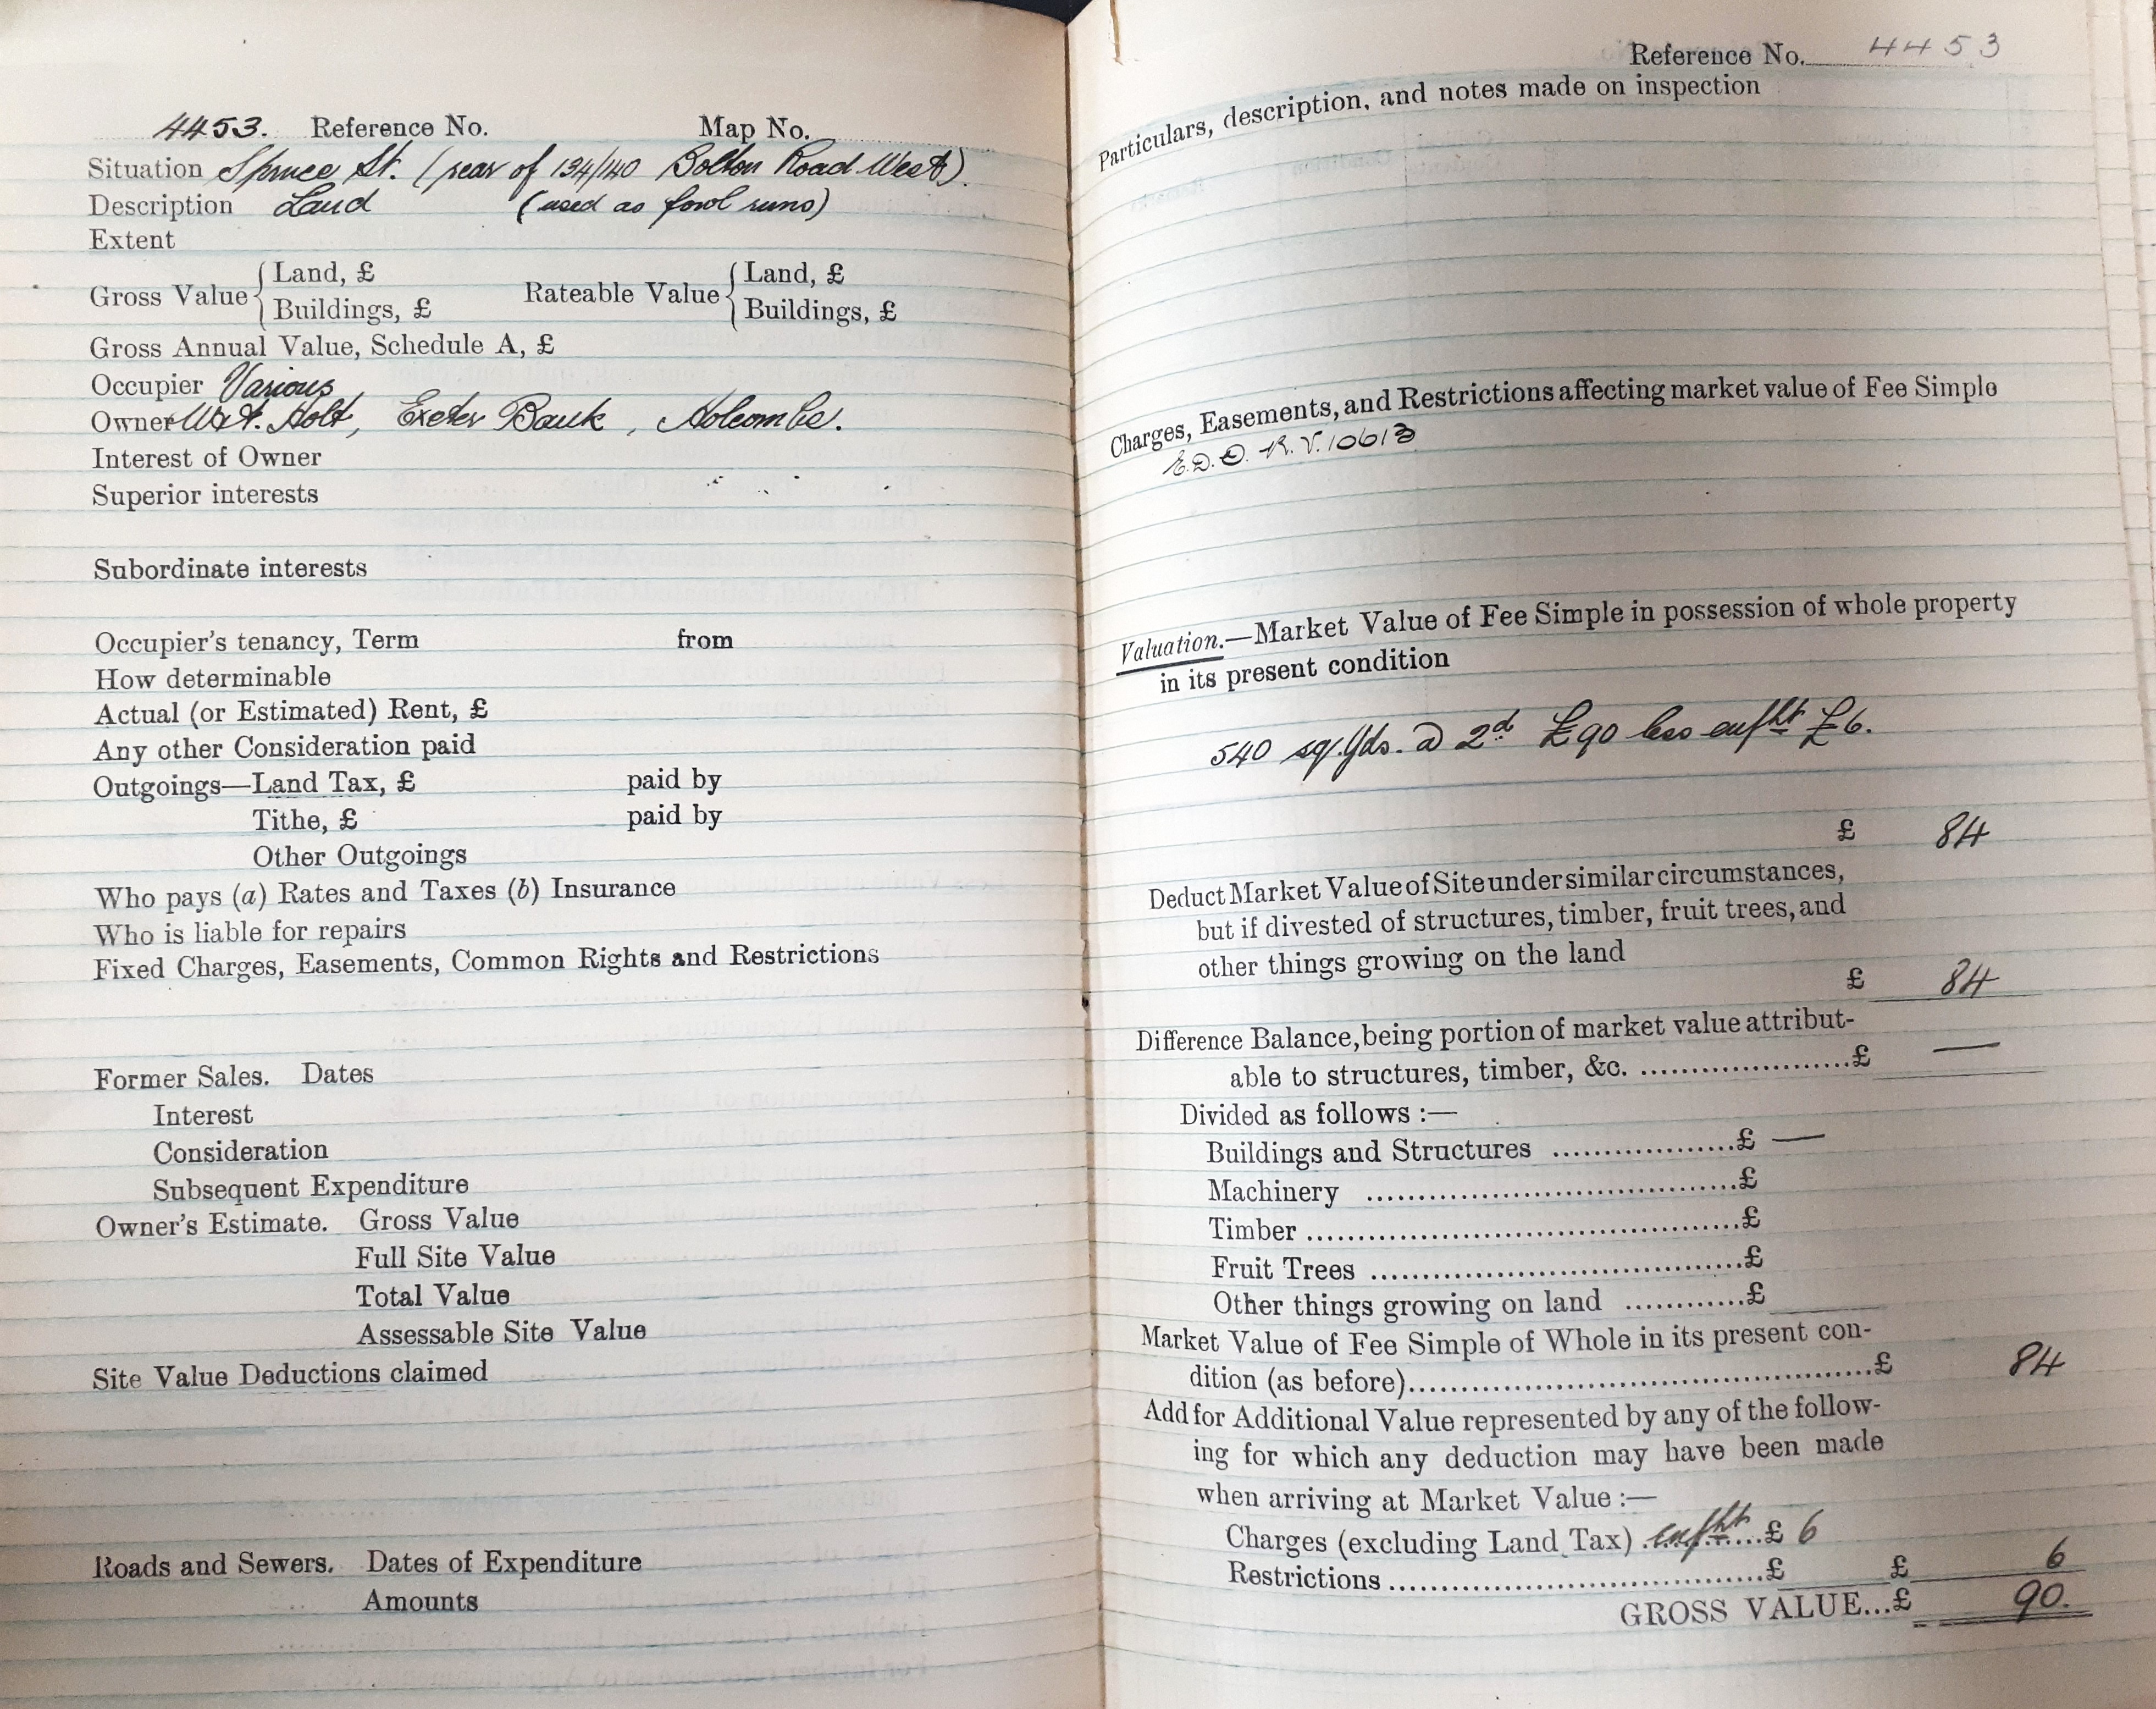 4453. Reference No. Map No.
Situation Spruce St. (rear of 134/140 Bolton Road West).
Description Land (used as fowl runs)
Extent
Gross Value { Land, £ Rateable Value { Land, £
Buildings, £ Buildings, £
Gross Annual Value, Schedule A, £
Occupier Various
Owner Holt, Exeter Bank, Holcombe.
Interest of Owner
Superior interests
Subordinate interests
Occupier's tenancy, Term from
How determinable
Actual (or Estimated) Rent, £
Any other Consideration paid
Outgoings—Land Tax, £ paid by
Tithe, £ paid by
Other Outgoings
Who pays (a) Rates and Taxes (b) Insurance
Who is liable for repairs
Fixed Charges, Easements, Common Rights and Restrictions
Former Sales. Dates
Interest
Consideration
Subsequent Expenditure
Owner's Estimate. Gross Value
Full Site Value
Total Value
Assessable Site Value
Site Value Deductions claimed
Roads and Sewers. Dates of Expenditure
Amounts
Reference No. 4453
Particulars, description, and notes made on inspection
Charges, Easements, and Restrictions affecting market value of Fee Simple
E.D.O. R.V. 10613
Valuation.—Market Value of Fee Simple in possession of whole property
in its present condition
540 sq. yds. @ 2d £90 less enfht £6.
£ 84
Deduct Market Value of Site under similar circumstances,
but if divested of structures, timber, fruit trees, and
other things growing on the land
£ 84
Difference Balance, being portion of market value attribut-
able to structures, timber, &c. ......................£ —
Divided as follows :—
Buildings and Structures ...................£ —
Machinery .......................................£
Timber .............................................£
Fruit Trees .......................................£
Other things growing on land ............£
Market Value of Fee Simple of Whole in its present con-
dition (as before)..................................................£ 84
Add for Additional Value represented by any of the follow-
ing for which any deduction may have been made
when arriving at Market Value :—
Charges (excluding Land Tax) enfht £ 6
Restrictions ........................................£ £ 6
GROSS VALUE...£ 90.